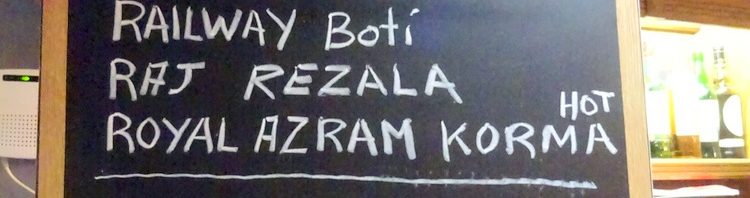 RAILWAY Boti
RAJ REZALA
HOT
ROYAL AZRAM KORMA